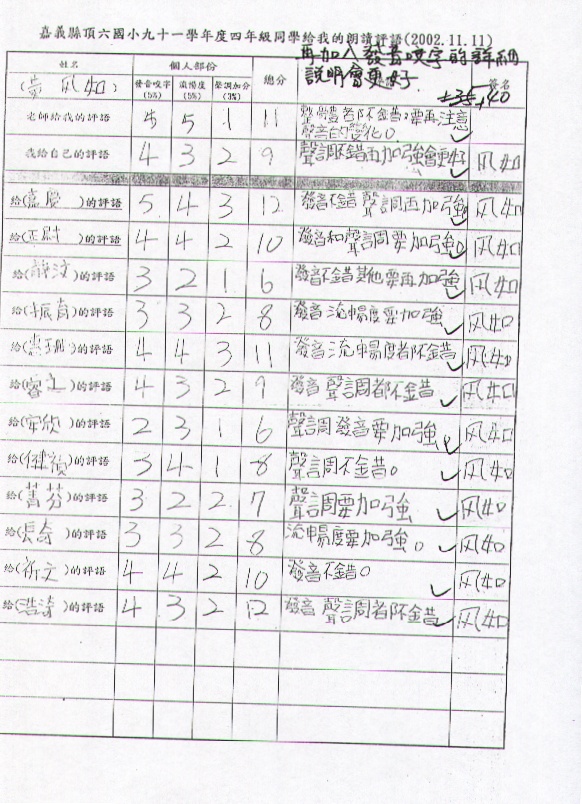 嘉義縣頂六國小九十一學年度四年級同學給我的朗讀評語(2002.11.11)
再加入發音咬字的詳細
說明會更好
+35+40
姓名 個人部份 總分 簽名
發音咬字(5%) 流暢度(5%) 聲調加分(3%)
老師給我的評語 5 5 1 11 聲調都不錯，要再注意
聲音的變化。
我給自己的評語 4 3 2 9 聲調不錯再加強會更好 風如
給(嘉慶)的評語 5 4 3 12 發音不錯 聲調再加強。 風如
給(正尉)的評語 4 4 2 10 發音和聲調要加強。 風如
給(靜汶)的評語 3 2 1 6 發音不錯其他要再加強 風如
給(振育)的評語 3 3 2 8 發音流暢度要加強 風如
給( )的評語 4 4 3 11 發音流暢度都不錯 風如
給(睿立)的評語 4 3 2 9 發音聲調都不錯 風如
給(安欣)的評語 2 3 1 6 聲調發音要加強。 風如
給(健禎)的評語 3 4 1 8 聲調不錯。 風如
給(菁芬)的評語 3 2 2 7 聲調要加強 風如
給(長奇)的評語 3 3 2 8 流暢度要加強。 風如
給(祈文)的評語 4 4 2 10 發音不錯。 風如
給(浩濤)的評語 4 3 2 12 發音聲調都不錯 風如